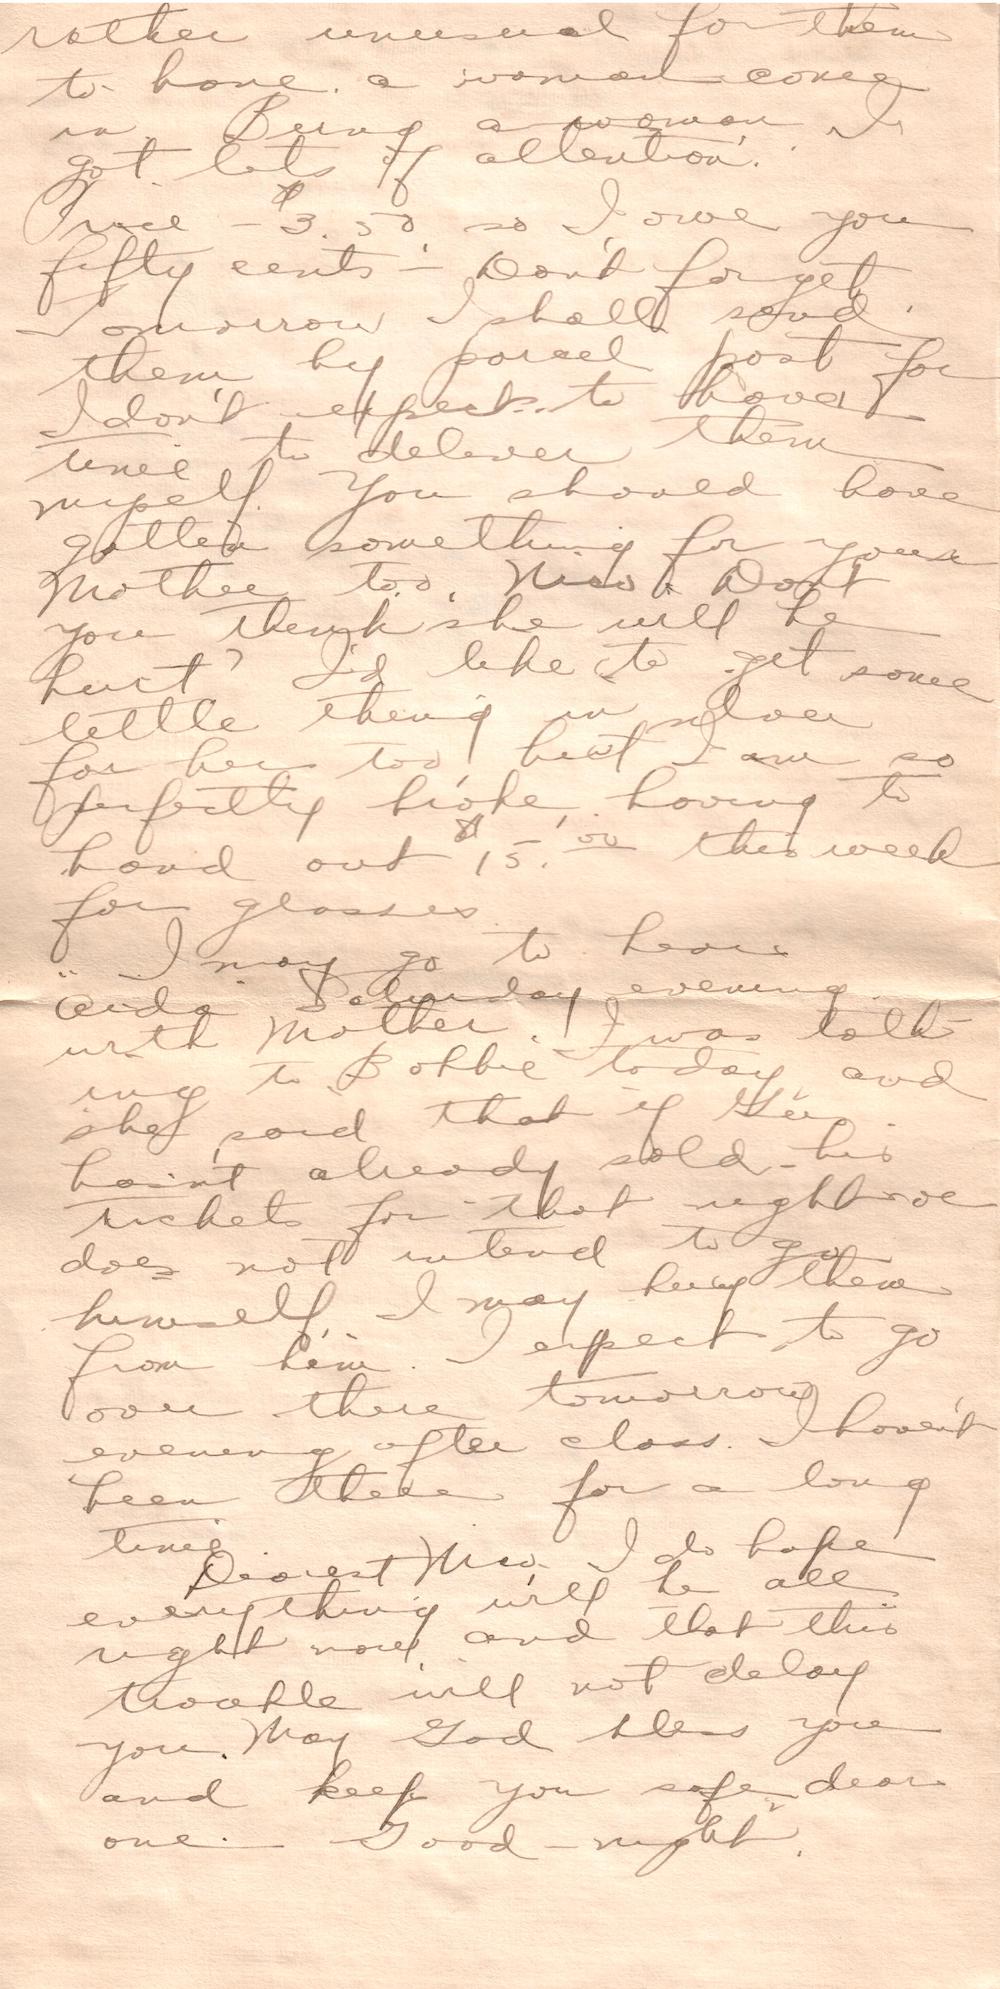 rather unusual for them
to have a woman come
in. Being a woman I
got lots of attention.
Price - $3.50, so I owe you
fifty cents - Don't forget.
Tomorrow I shall send
them by parcel post for
I don't expect to have
time to deliver them
myself. You should have
gotten something for your
Mother too, Don't
you think she will be
hurt? I'd like to get some
little thing in silver
for her too, but I am so
perfectly broke, having to
hand out $15.00 this week
for glasses.
I may go to hear
"Aida" Saturday evening
with Mother. I was talk-
ing to Bobbie today, and
she said that if
hasn't already sold his
tickets for that night or
does not intend to go
himself, I may buy them
from him. I expect to go
over there tomorrow
evening after class. I haven't
been there for a long
time.
Dearest I do hope
everything will be all
right now, and that this
trouble will not delay
you. May God bless you
and keep you safe, dear
one. Good-night.